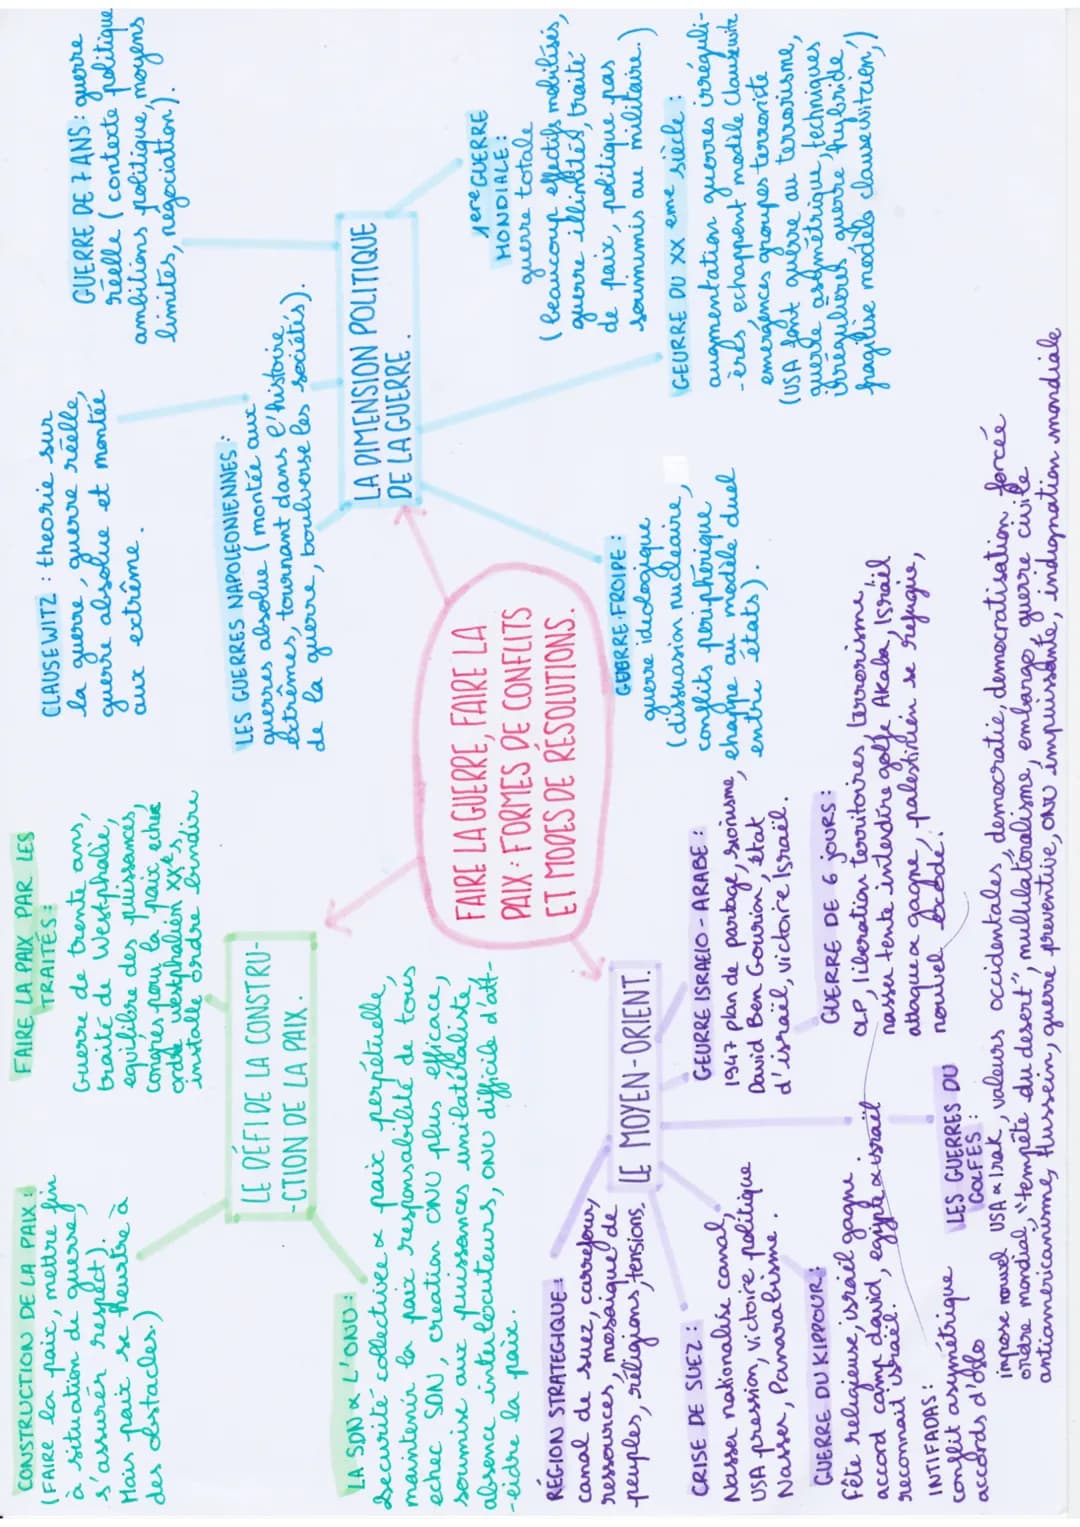 CONSTRUCTION DE LA PAIX :
(FAIRE la paix, mettre fin
à situation de guerre,
s'assurer respect).
Mais paix se heurtre à
des obstacles.)
FAIRE LA PAIX PAR LES
TRAITÉS :
Guerre de trente ans,
traité de Westphalie,
equilibre des puissances,
Congres pour la paix echec
ordre westphalien XXes,
installe ordre
LE DÉFI DE LA CONSTRU-
-CTION DE LA PAIX .
LA SDN & L'ONU :
Securité collective & paix perpétuelle,
maintenir la paix responsabilité de tous
echec SDN, creation ONU plus efficace,
soumise aux puissances unilatéraliste,
absence interlocuteurs, ONU difficile d'att-
-eidre la paix.
CLAUSEWITZ : theorie sur
la guerre, guerre réelle,
guerre absolue et montée
aux extrême .
GUERRE DE 7 ANS : guerre
réelle ( contexte politique
ambitions politique, moyens
limités, negociation).
LES GUERRES NAPOLEONIENNES :
guerres absolue ( montée aux
extrêmes, tournant dans l'histoire
de la guerre, boulverse les sociétés).
LA DIMENSION POLITIQUE
DE LA GUERRE .
1ere GUERRE
MONDIALE :
guerre totale
( beaucoup effectifs mobilisés,
guerre illimités, traité
de paix, politique pas
soummis au militaire. )
GEURRE DU XX eme siècle :
augmentation guerres irréguli-
-ères echappent modèle clausewitz
emergences groupes terroriste
(USA font guerre au terrorisme,
guerre asymétrique, techniques
irregulieres, guerre hybride,
fragilise modèle clausewitzien,)
GUERRE FROIDE :
guerre ideologique
( dissuasion nucleaire,
conflits peripherique
echappe au modèle duel
entre états).
FAIRE LA GUERRE, FAIRE LA
PAIX : FORMES DE CONFLITS
ET MODES DE RÉSOLUTIONS.
LE MOYEN-ORIENT.
RÉGION STRATEGIQUE :
canal de suez, carrefour,
ressources, mosaïque de
peuples, réligions, tensions.
CRISE DE SUEZ :
Nasser nationalise canal,
USA pression, victoire politique
Nasser, Panarabisme .
GUERRE DU KIPPOUR :
fête religieuse, israël gagne
accord camp david, egypte & israël
reconnait israël.
INTIFADAS :
conflit asymétrique
accords d'Oslo
GEURRE ISRAELO-ARABE :
1947 plan de partage, sionisme,
David Ben Gourion, état
d'israël, victoire Israël.
GUERRE DE 6 JOURS :
OLP, liberation territoires, terrorisme,
nasser tente interdire golfe Akaba, Israël
attaque & gagne, palestinien se refugie,
nouvel
LES GUERRES DU
GOLFES :
impose nouvel USA & Irak, valeurs occidentales, democratie, democratisation forcée
ordre mondial, "tempête du desert", multilatéralisme, embargo, guerre civile
antiaméricanisme, Hussein, guerre preventive, ONU impuissante, indignation mondiale